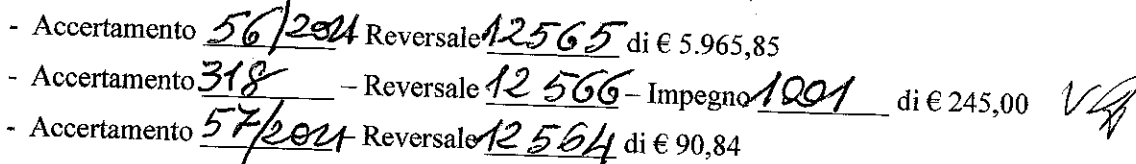 - Accertamento 56/2021 Reversale 12565 di € 5.965,85
- Accertamento 318 – Reversale 12566 – Impegno 1001 di € 245,00
- Accertamento 57/2021 Reversale 12564 di € 90,84